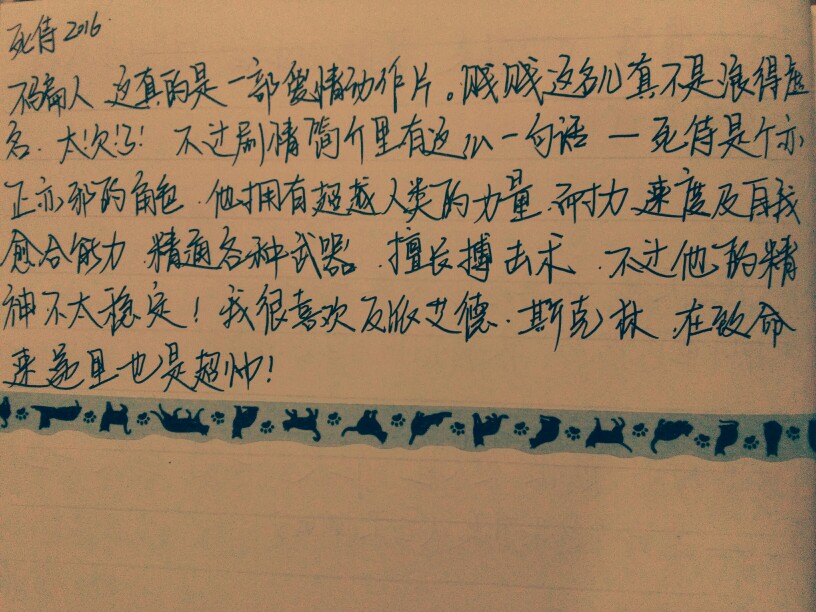 死侍2016
不骗人 这真的是一部爱情动作片。贱贱这名儿真不是浪得虚
名.太欢了! 不过剧情简介里有这么一句话 — 死侍是个亦
正亦邪的角色.他拥有超越人类的力量.耐力.速度及自我
愈合能力.精通各种武器.擅长搏击术.不过他的精
神不太稳定!我很喜欢反版艾德·斯克林.在致命
速递里也是超帅!